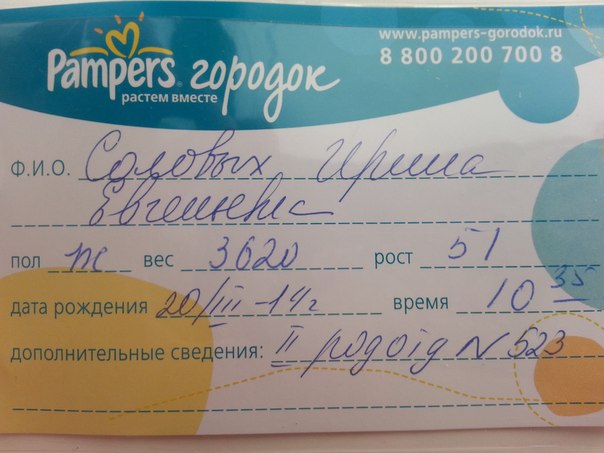 www.pampers-gorodok.ru
8 800 200 700 8
Pampers городок
растем вместе
Ф.И.О. Соловых Ирина
Евгеньевна
пол ж вес 3620 рост 51
дата рождения 20/III-14г время 10 35
дополнительные сведения: II родотд N 523